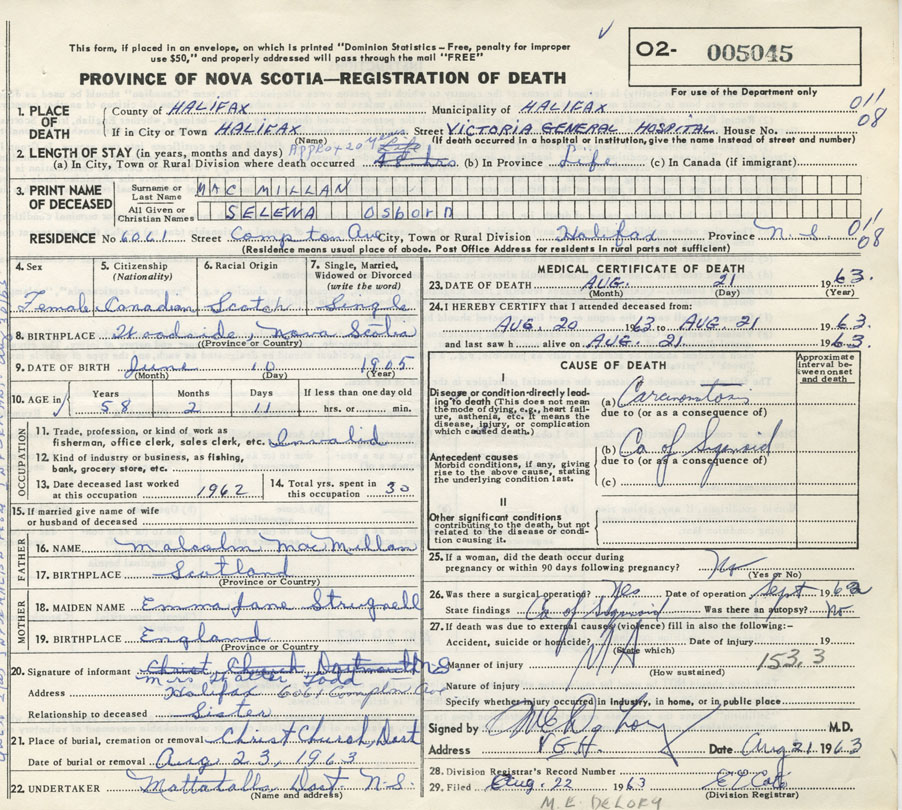 This form, if placed in an envelope, on which is printed "Dominion Statistics—Free, penalty for improper
use $50," and properly addressed will pass through the mail "FREE"
PROVINCE OF NOVA SCOTIA—REGISTRATION OF DEATH
O2- 005045
For use of the Department only
011
08
1. PLACE OF DEATH
County of HALIFAX Municipality of HALIFAX
If in City or Town HALIFAX Street VICTORIA GENERAL HOSPITAL House No.
(Name) (If death occurred in a hospital or institution, give the name instead of street and number)
2. LENGTH OF STAY (in years, months and days) Approx 20 yrs Life
(a) In City, Town or Rural Division where death occurred 48 hrs (b) In Province Life (c) In Canada (if immigrant)
3. PRINT NAME OF DECEASED
Surname or Last Name MAC MILLAN
All Given or Christian Names SELEMA Osborn
RESIDENCE No 6061 Street Compton Ave City, Town or Rural Division Halifax Province N.S
011
08
(Residence means usual place of abode. Post Office Address for residents in rural parts not sufficient)
4. Sex 5. Citizenship (Nationality) 6. Racial Origin 7. Single, Married, Widowed or Divorced (write the word)
Female Canadian Scotch Single
8. BIRTHPLACE Woodside, Nova Scotia
(Province or Country)
9. DATE OF BIRTH June 10 1905
(Month) (Day) (Year)
10. AGE in Years Months Days If less than one day old
58 2 11 hrs. or min.
OCCUPATION
11. Trade, profession, or kind of work as
fisherman, office clerk, sales clerk, etc.
12. Kind of industry or business, as fishing,
bank, grocery store, etc.
13. Date deceased last worked at this occupation 1962
14. Total yrs. spent in this occupation 30
15. If married give name of wife
or husband of deceased
FATHER
16. NAME Malcolm MacMillan
17. BIRTHPLACE Scotland
(Province or Country)
MOTHER
18. MAIDEN NAME Emma Jane Strugnell
19. BIRTHPLACE England
(Province or Country)
20. Signature of informant Christ Church Dartmouth N S
Mrs Todd
Address Halifax 6061 Compton Ave
Relationship to deceased Sister
21. Place of burial, cremation or removal Christ Church, Dart
Date of burial or removal Aug 23, 1963
22. UNDERTAKER Mattatalls Dart N.S.
(Name and address)
MEDICAL CERTIFICATE OF DEATH
23. DATE OF DEATH AUG. 21 1963.
(Month) (Day) (Year)
24. I HEREBY CERTIFY that I attended deceased from:
AUG. 20 1963 to AUG. 21 1963.
and last saw h alive on AUG. 21 1963.
CAUSE OF DEATH
Approximate interval between onset and death
I
Disease or condition directly leading to death (This does not mean the mode of dying, e.g., heart failure, asthenia, etc. It means the disease, injury, or complication which caused death.)
(a)
due to (or as a consequence of)
Antecedent causes
Morbid conditions, if any, giving rise to the above cause, stating the underlying condition last.
(b) Ca of Sigmoid
due to (or as a consequence of)
(c)
II
Other significant conditions contributing to the death, but not related to the disease or condition causing it.
25. If a woman, did the death occur during
pregnancy or within 90 days following pregnancy? No
(Yes or No)
26. Was there a surgical operation? Yes Date of operation Sept 1962
State findings Ca of Sigmoid Was there an autopsy? No
27. If death was due to external causes (violence) fill in also the following:—
Accident, suicide or homicide? Date of injury 19
(State which)
N/A 153.3
Manner of injury (How sustained)
Nature of injury
Specify whether injury occurred in industry, in home, or in public place
Signed by M.D.
Address V.G.H. Date Aug 21 1963
28. Division Registrar's Record Number
29. Filed Aug. 22 1963
(Division Registrar)
M.E. DELORY